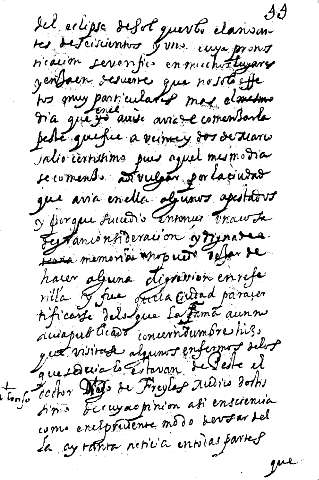 33
del eclipse de sol que vbo el año an
tes de seiscientos y vno cuya pronos
ticacion se verifico en muchos lugares
y en baen de suerte que no solo effe
tos muy particulares mas el mesmo
dia que yo en el auise avia de comensar la
peste que fue a veinte y dos de março
salio certissimo pues aquel mesmo dia
se comenso a divulgar por la ciudad
que avia en ella algunos apestados
y porque sucedio entonces vna cosa
de tan consideracion y digna de
memoria no puedo dejar de
hacer alguna digression en refe
rilla y fue que la Ciudad para cer
tificarse de lo que la fama aun no
avia publicado con certidumbre hizo
que visitase algunos enfermos de los
que se decia lo estavan de Peste el
doctor Alonso de Freylas Medico doctis
simo de cuya opinion asi en sciencia
como en el prudente modo de vsar del
la ay tanta noticia en todas partes
que